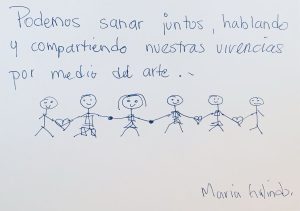 Podemos sanar juntos, hablando
y compartiendo nuestras vivencias
por medio del arte..
María Galindo.